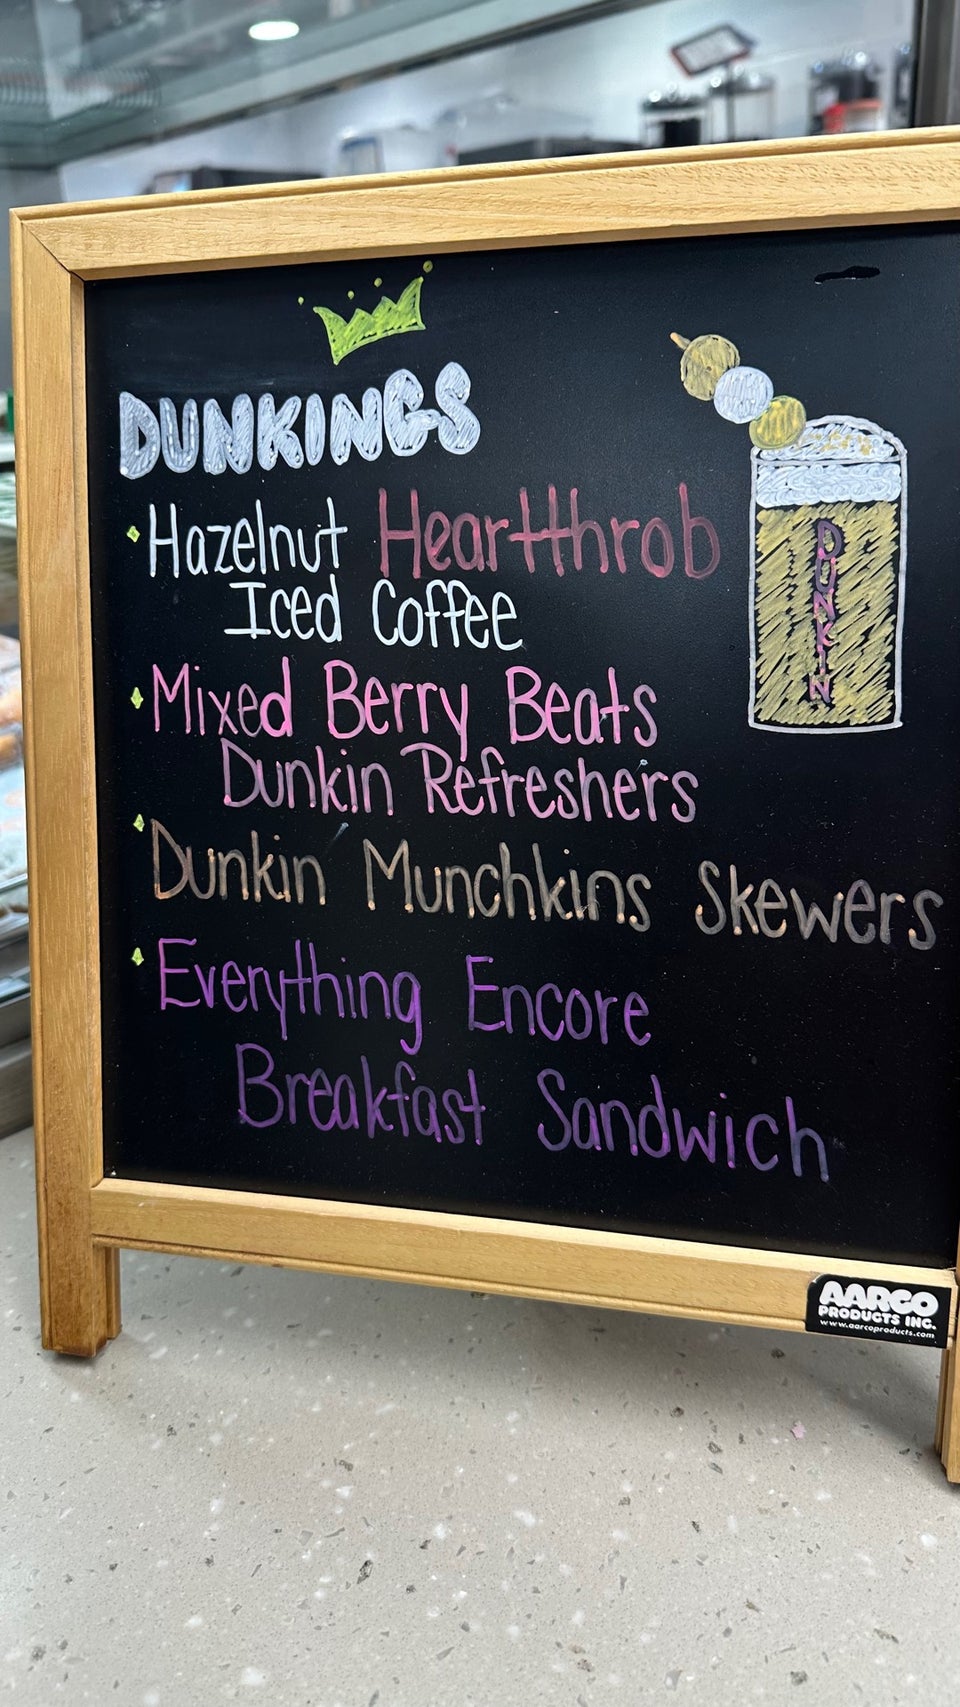 DUNKINGS
Hazelnut Heartthrob
Iced Coffee
Mixed Berry Beats
Dunkin Refreshers
Dunkin Munchkins Skewers
Everything Encore
Breakfast Sandwich
DUNKIN
AARCO
PRODUCTS INC.
www.aarcoproducts.com